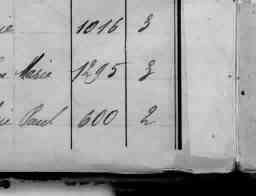 ie 1016 3
ie Marie 1295 3
ie Paul 600 2